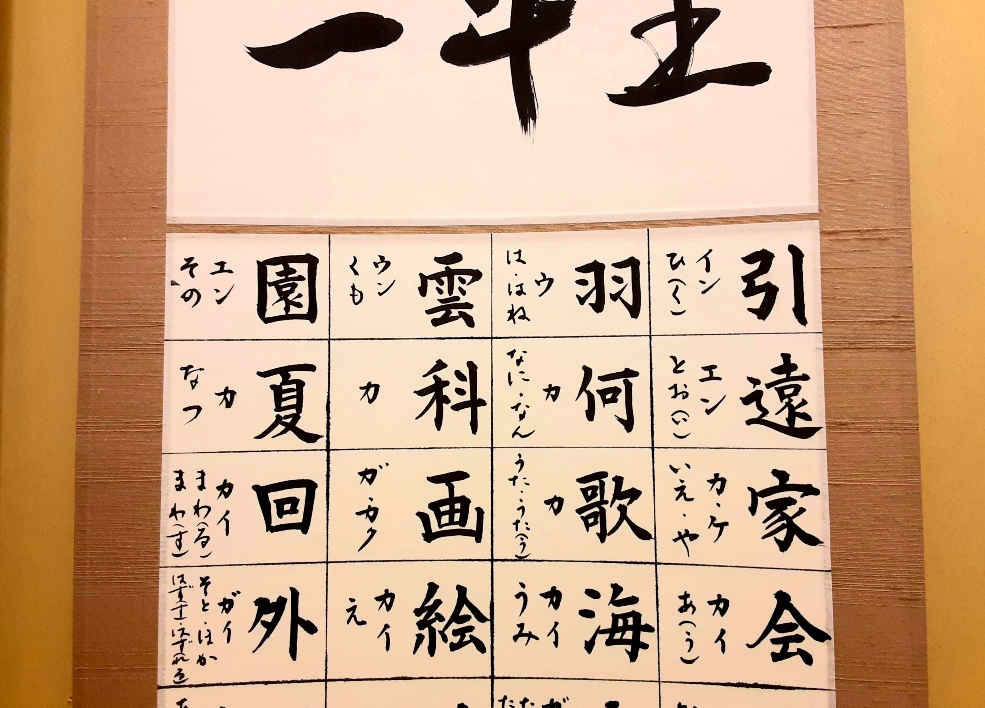 引
イン
ひ(く)
羽
ウ
は・はね
雲
ウン
くも
園
エン
その
遠
エン
とお(い)
何
カ
なに・なん
科
カ
夏
カ
なつ
家
カ・ケ
いえ・や
歌
カ
うた・うた(う)
画
ガ・カク
回
カイ
まわ(る)
まわ(す)
会
カイ
あ(う)
海
カイ
うみ
絵
カイ
え
外
ガイ
そと・ほか